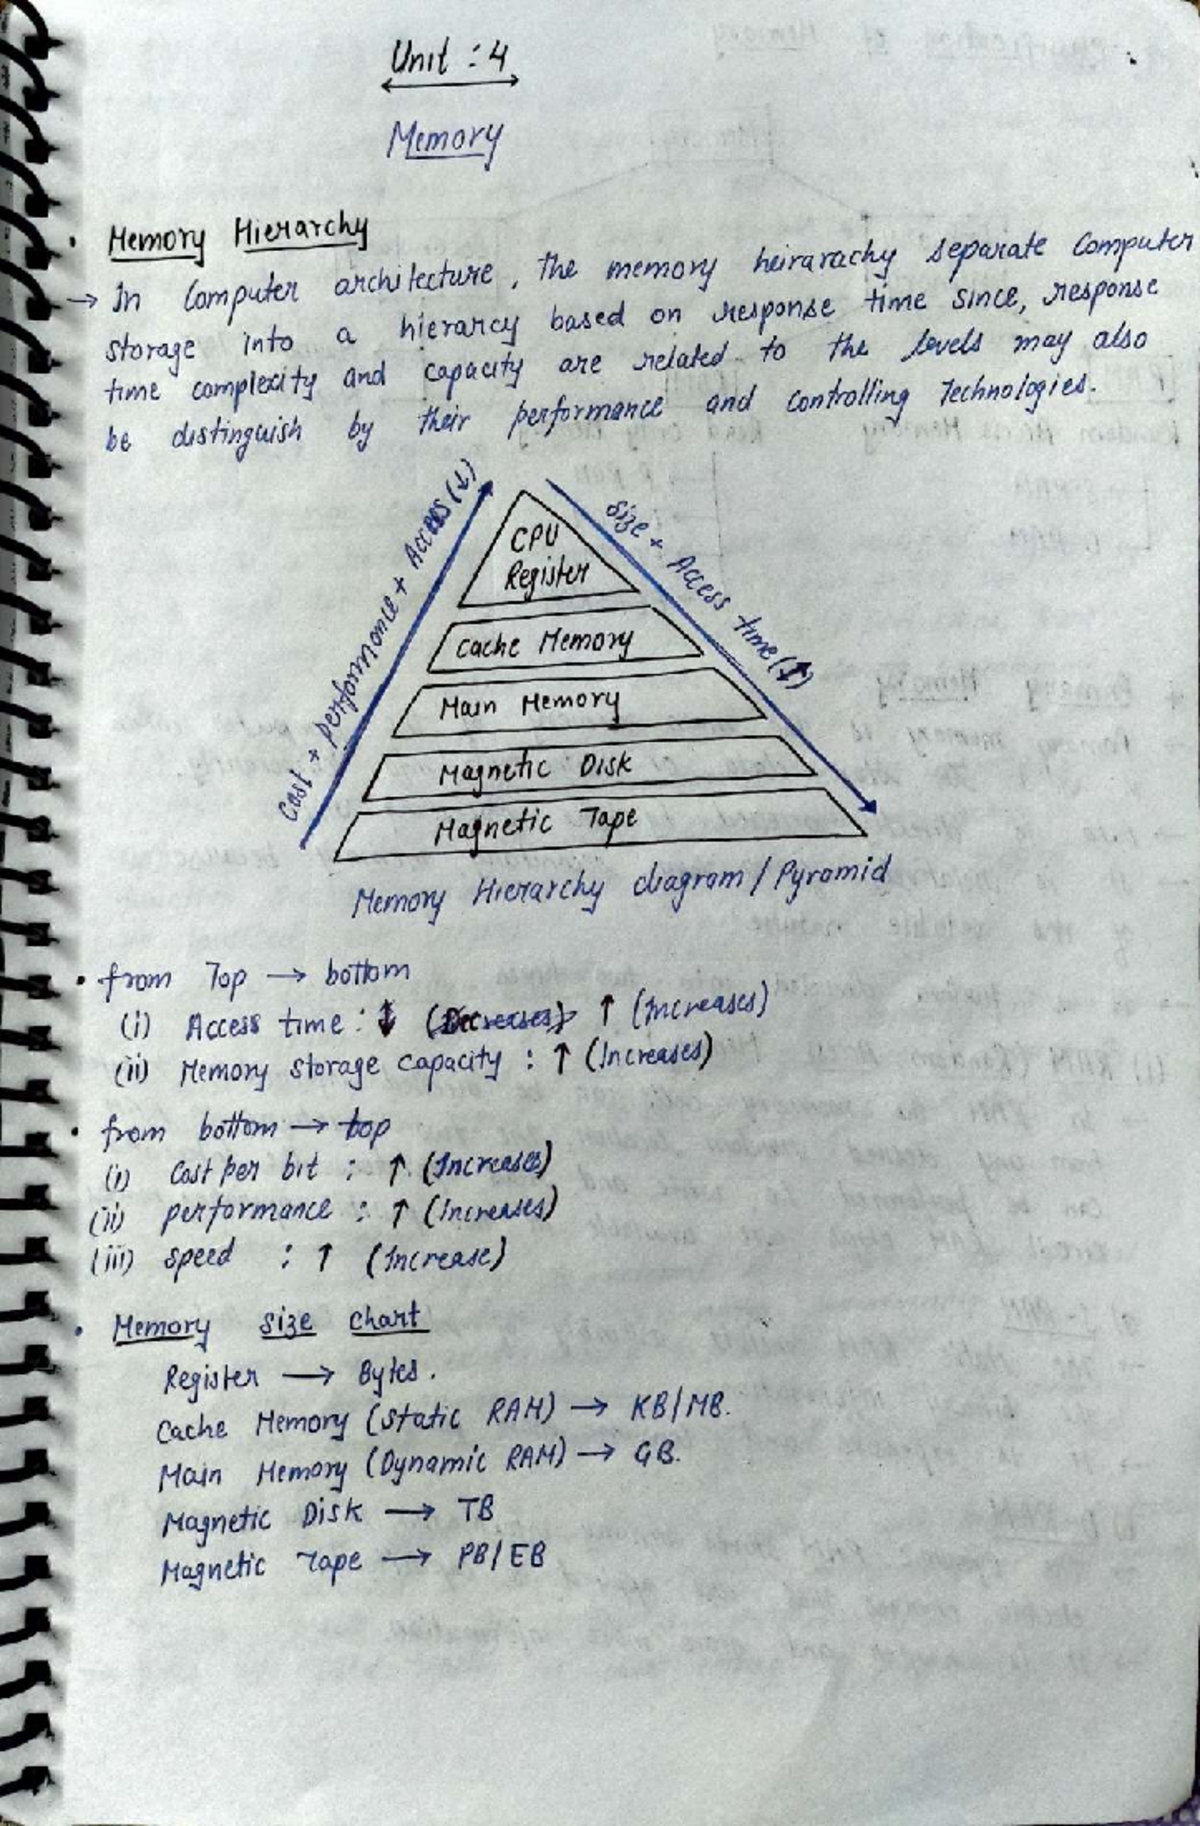 Unit : 4
Memory
• Memory Hierarchy
→ In Computer architecture, the memory heirarachy separate Computer
storage into a hierarcy based on response time since, response
time complexity and capacity are related to the levels may also
be distinguish by their performance and controlling Technologies.
Cost + performance + Access(↓)
Size + Access time(↑)
CPU
Register
Cache Memory
Main Memory
Magnetic Disk
Magnetic Tape
Memory Hierarchy diagram / Pyramid
• from Top → bottom
(i) Access time : (Decreases) ↑ (Increases)
(ii) Memory storage capacity : ↑ (Increases)
• from bottom → top
(i) Cost per bit : ↑ (Increases)
(ii) performance : ↑ (Increases)
(iii) speed : ↑ (Increase)
• Memory size chart
Register → Bytes.
Cache Memory (Static RAM) → KB/MB.
Main Memory (Dynamic RAM) → GB.
Magnetic Disk → TB
Magnetic Tape → PB/EB